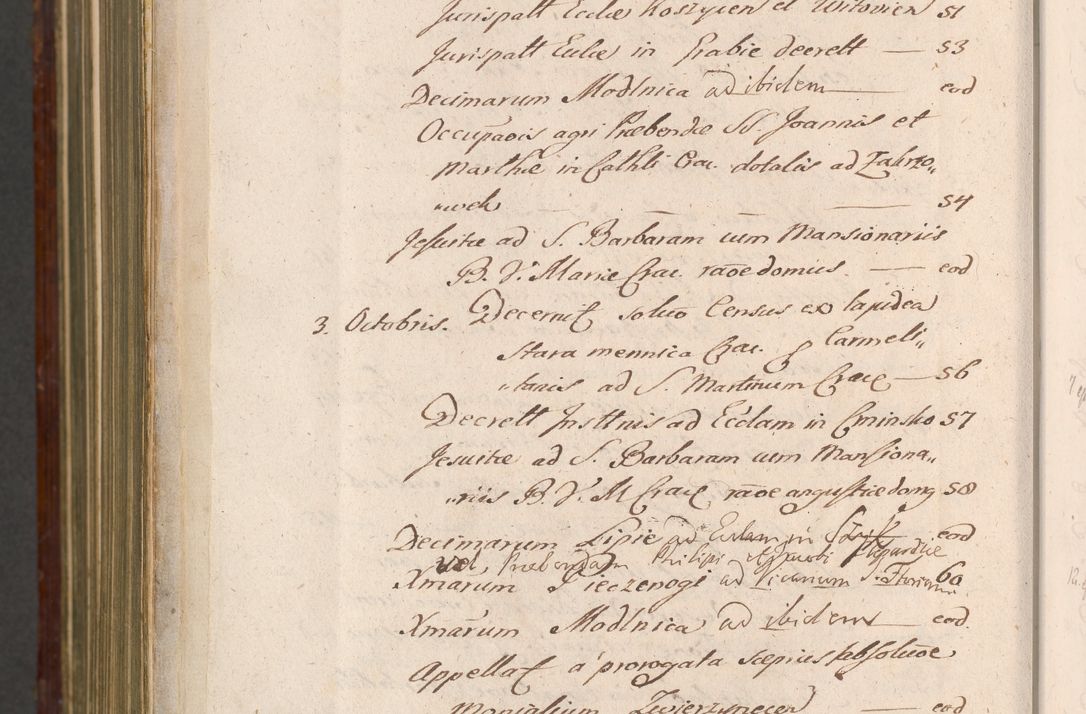 Jurispatt Ecclae Koszycen et Witovien 51
Jurispatt Ecclae in Grabie decrett — 53
Decimarum Modlnica ad ibidem — eod
Occupaois agri Praebendae SS. Joannis et
Marthae in Cathli Crac. dotalis ad Zabrzo„
„wek — 54
Jesuitae ad S. Barbaram cum Mansionariis
B. V. Mariae Crac. raoe domus. — eod
3. Octobris. Decernit soluo Census ex lapidea
Stara mennica Crac. p Carmeli„
„tanis ad S. Martinum Crace — 56
Decrett Insttnis ad Ecclam in Cminsko 57
Jesuitae ad S. Barbaram cum Mansiona„
„riis B. V. M Crace raoe angustiae domg 58
Decimarum Lipie ad Eclam in eod
vel, Praebendam Philipi
Xmarum Pieczenogi ad Vicarium S. Floriani 60
Xmarum Modlnica ad ibidem — eod.
Appellat a prorogata saepius absoluoe
Monialium Zwierzynecen — eod